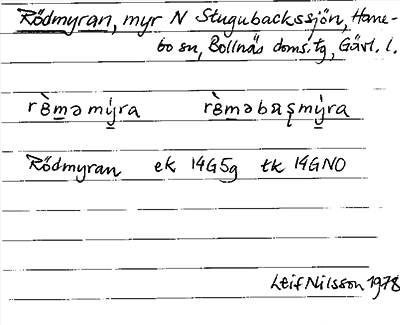 Rödmyran, myr N Stugubackssjön, Hane-
bo sn, Bollnäs doms. tg, Gävl. l.
rɞ̀məmýra rɞ̀məbaʂmýra
Rödmyran ek 14G5g tk 14GNO
Leif Nilsson 1978